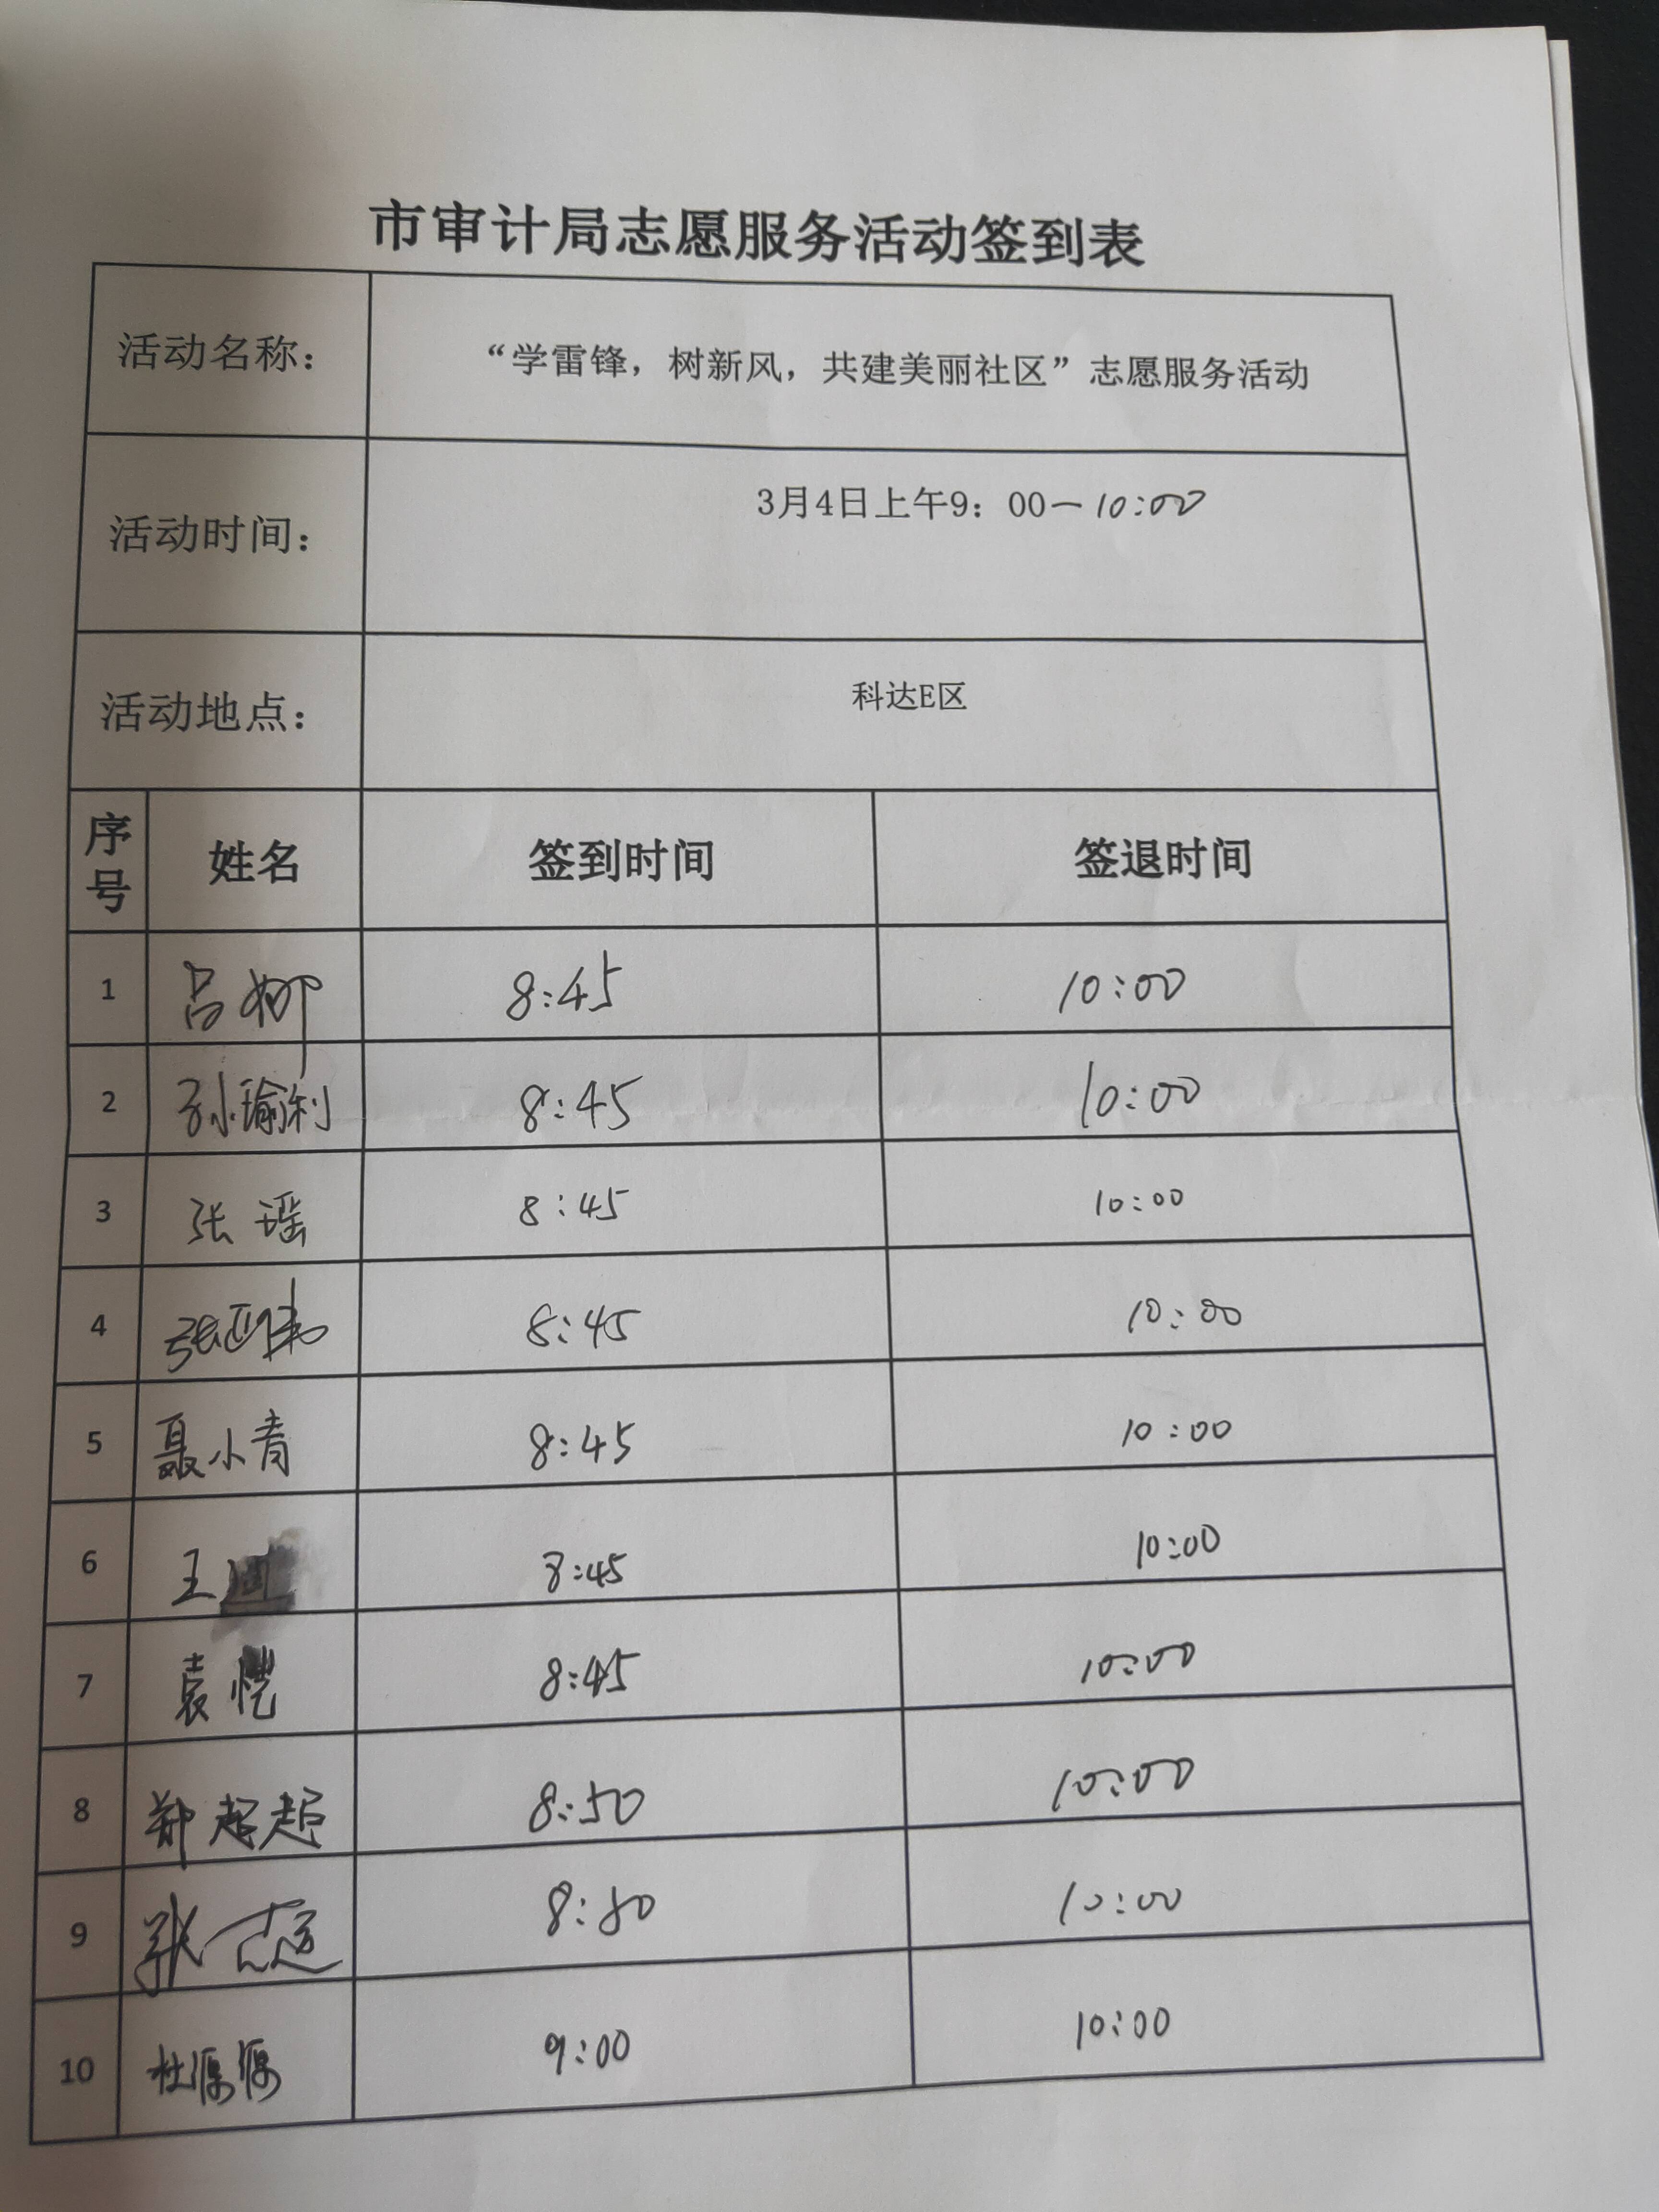 市审计局志愿服务活动签到表
活动名称： “学雷锋，树新风，共建美丽社区”志愿服务活动
活动时间： 3月4日上午9：00—10:00
活动地点： 科达E区
序号 姓名 签到时间 签退时间
1 吕娜 8:45 10:00
2 孙瑜利 8:45 10:00
3 张瑶 8:45 10:00
4 张亚伟 8:45 10:00
5 聂小青 8:45 10:00
6 王 8:45 10:00
7 袁恺 8:45 10:00
8 郑超超 8:50 10:00
9 张 8:50 10:00
10 杜源源 9:00 10:00